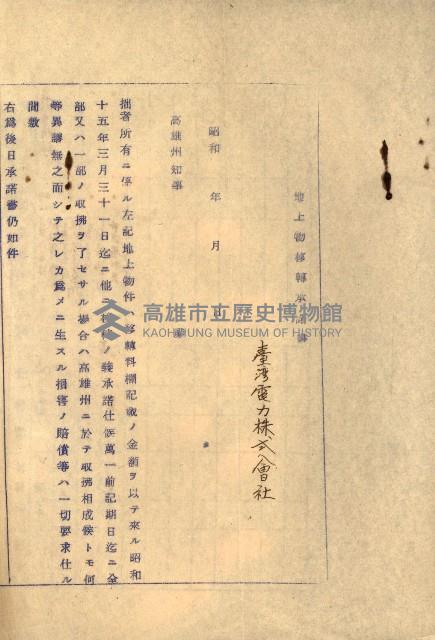 地上物移轉承諾書
臺灣電力株式會社
昭和　年　月　日
高雄州知事
拙者所有ニ係ル左記地上物件ハ移轉料欄記載ノ金額ヲ以テ來ル昭和
十五年三月三十一日迄ニ他ヘ移轉ノ義承諾仕候萬一前記期日迄ニ全
部又ハ一部ノ收拂ヲ了セサル場合ハ高雄州ニ於テ收拂相成候トモ何
等異議無之而シテ之レカ爲メニ生スル損害ノ賠償等ハ一切要求仕ル
間敷
右爲後日承諾書仍如件
高雄市立歷史博物館
KAOHSIUNG MUSEUM OF HISTORY